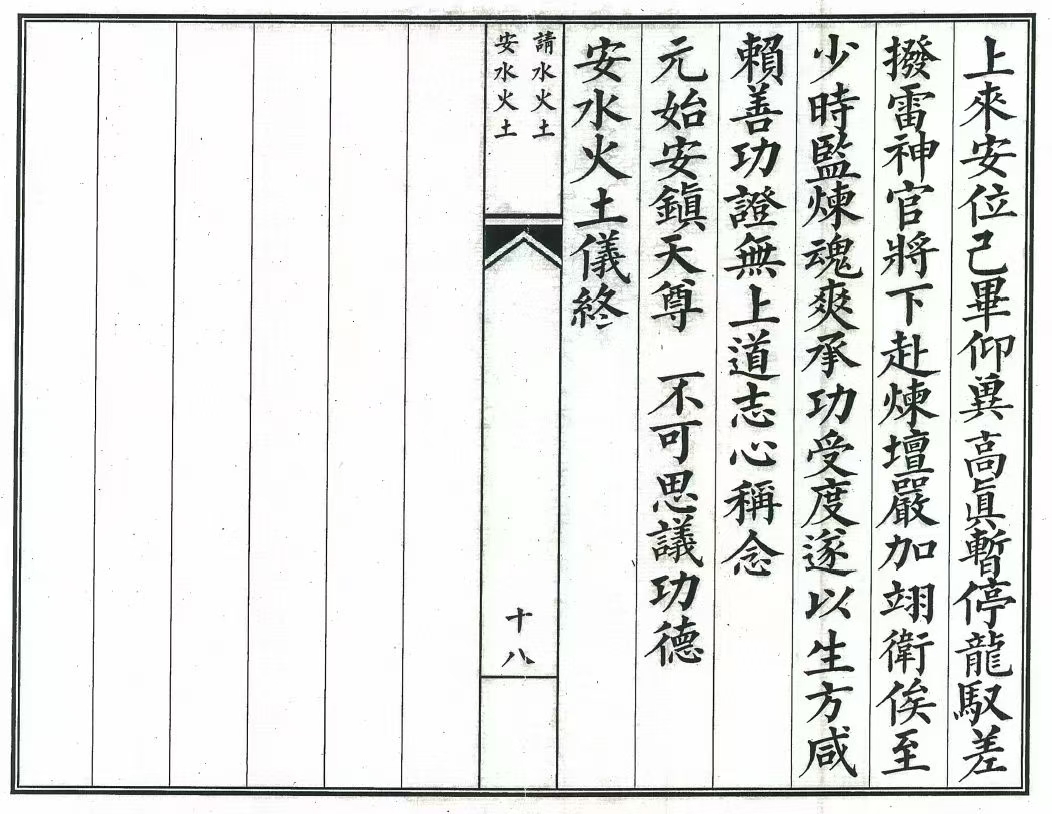 上來安位己畢仰異高眞暫停龍馭差
撥雷神官將下赴煉壇嚴加翊衛俟至
少時監煉魂爽承功受度遂以生方咸
賴善功證無上道志心稱念
元始安鎭天尊　一不可思議功德
安水火土儀終
請水火土
安水火土
十八